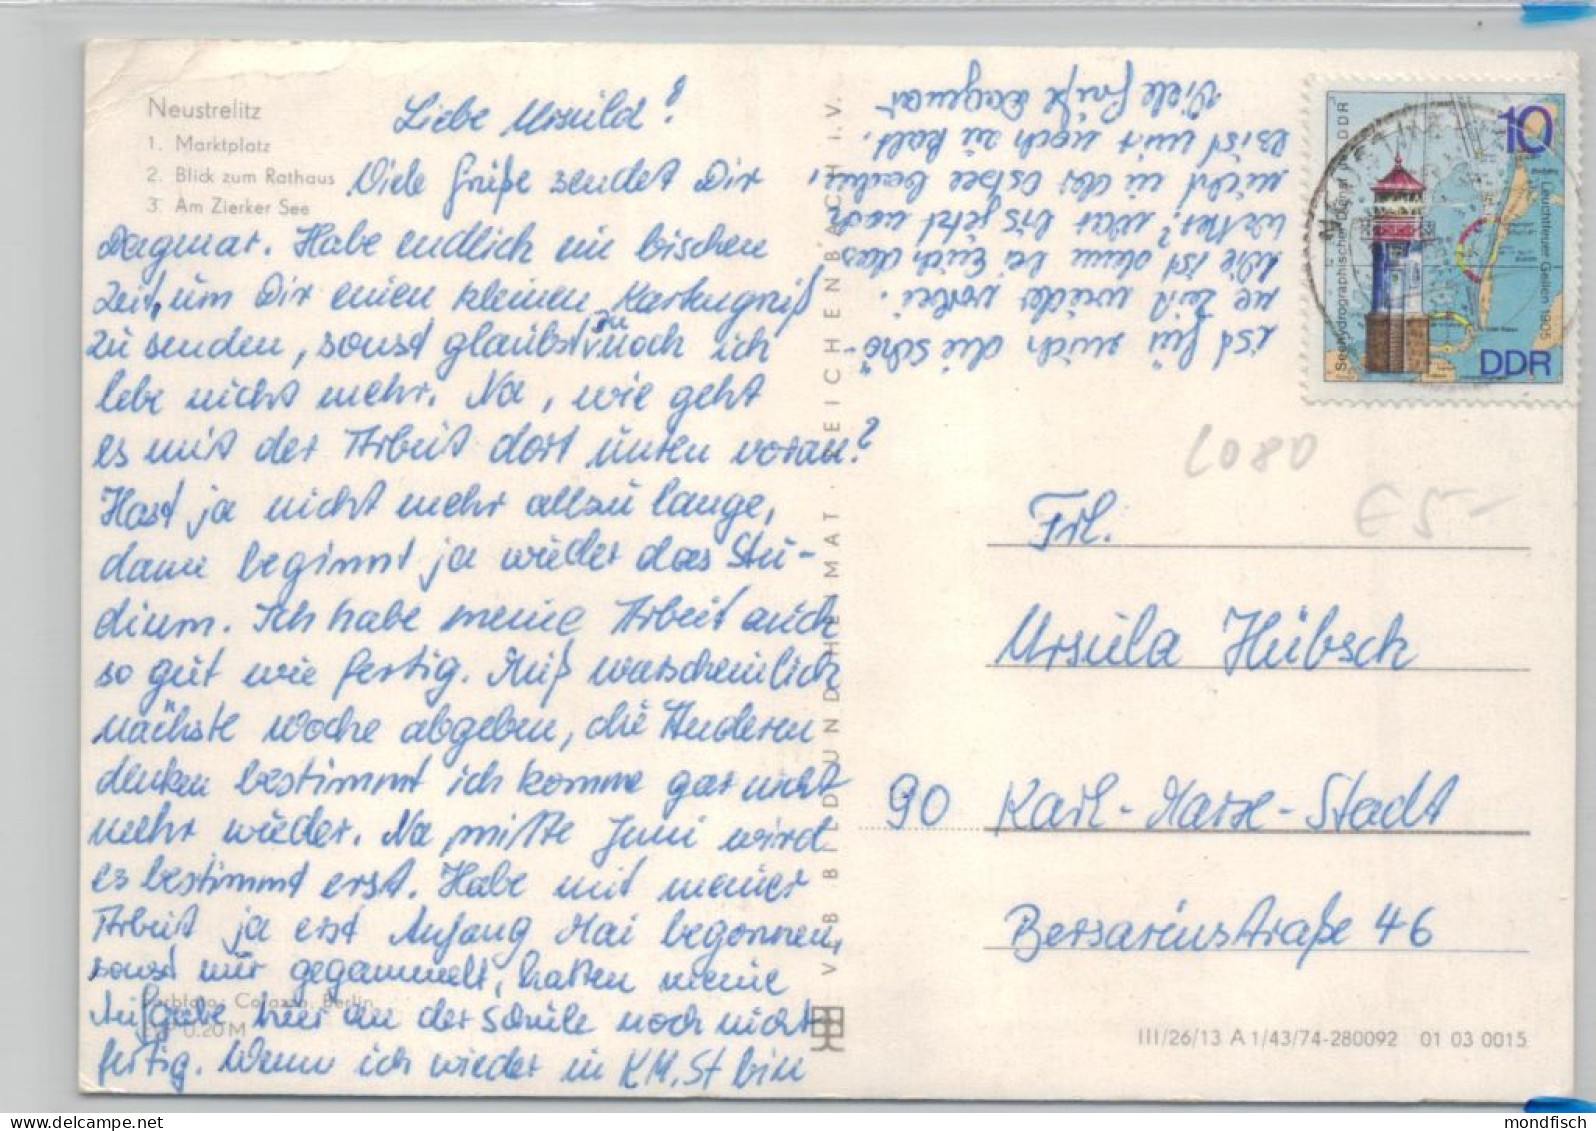 Neustrelitz
1. Marktplatz
2. Blick zum Rathaus
3. Am Zierker See
Liebe Ursula!
Viele Grüße sendet Dir
Dagmar. Habe endlich ein bischen
Zeit, um Dir einen kleinen Kartengruß
zu senden, sonst glaubst du noch ich
lebe nicht mehr. Na, wie geht
es mit der Arbeit dort unten voran?
Hast ja nicht mehr allzu lange,
dann beginnt ja wieder das Stu-
dium. Ich habe meine Arbeit auch
so gut wie fertig. Muß warscheinlich
nächste Woche abgeben, die Anderen
denken bestimmt ich komme gar nicht
mehr wieder. Na mitte Juni wird
es bestimmt erst. Habe mit meiner
Arbeit ja erst Anfang Mai begonnen,
sonst nur gegammelt, hatten meine
Aufgabe hier an der Schule noch nicht
fertig. Wenn ich wieder in KM.St bin
Farbfoto: Berlin
0.20 M
ist für mich die schö-
ne Zeit wieder vorbei.
Wie ist denn bei Euch das
Wetter? War bis jetzt noch
nicht in der Ostsee baden,
es ist mir noch zu kalt.
Viele Grüße Dagmar
VEB BILD UND HEIMAT · REICHENBACH I. V.
10
DDR
DDR
Seehydrographischer Dienst
Leuchtfeuer Gellen 1905
2080
€ 5-
Frl.
Ursula Hübsch
90 Karl-Marx-Stadt
Bersarinstraße 46
III/26/13 A 1/43/74-280092 01 03 0015
mondfisch